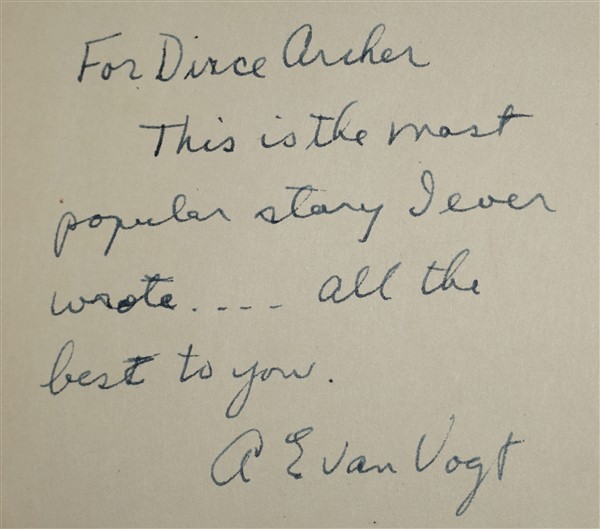 For Dirce Archer
This is the most
popular story I ever
wrote.... all the
best to you.
A E van Vogt